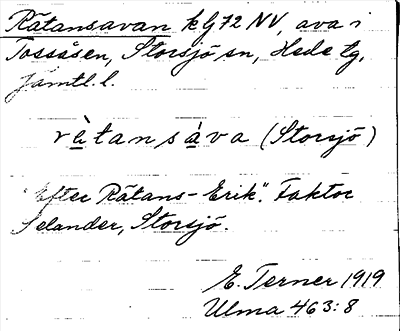 Rätansavan k bg 72 NV, ava i
Tossåsen, Storsjö sn, Hede tg,
Jämtl. l.
rètansàva (Storsjö)
"Efter Rätans-Erik". Faktor
Selander, Storsjö.
E. Terner 1919
Ulma 463:8